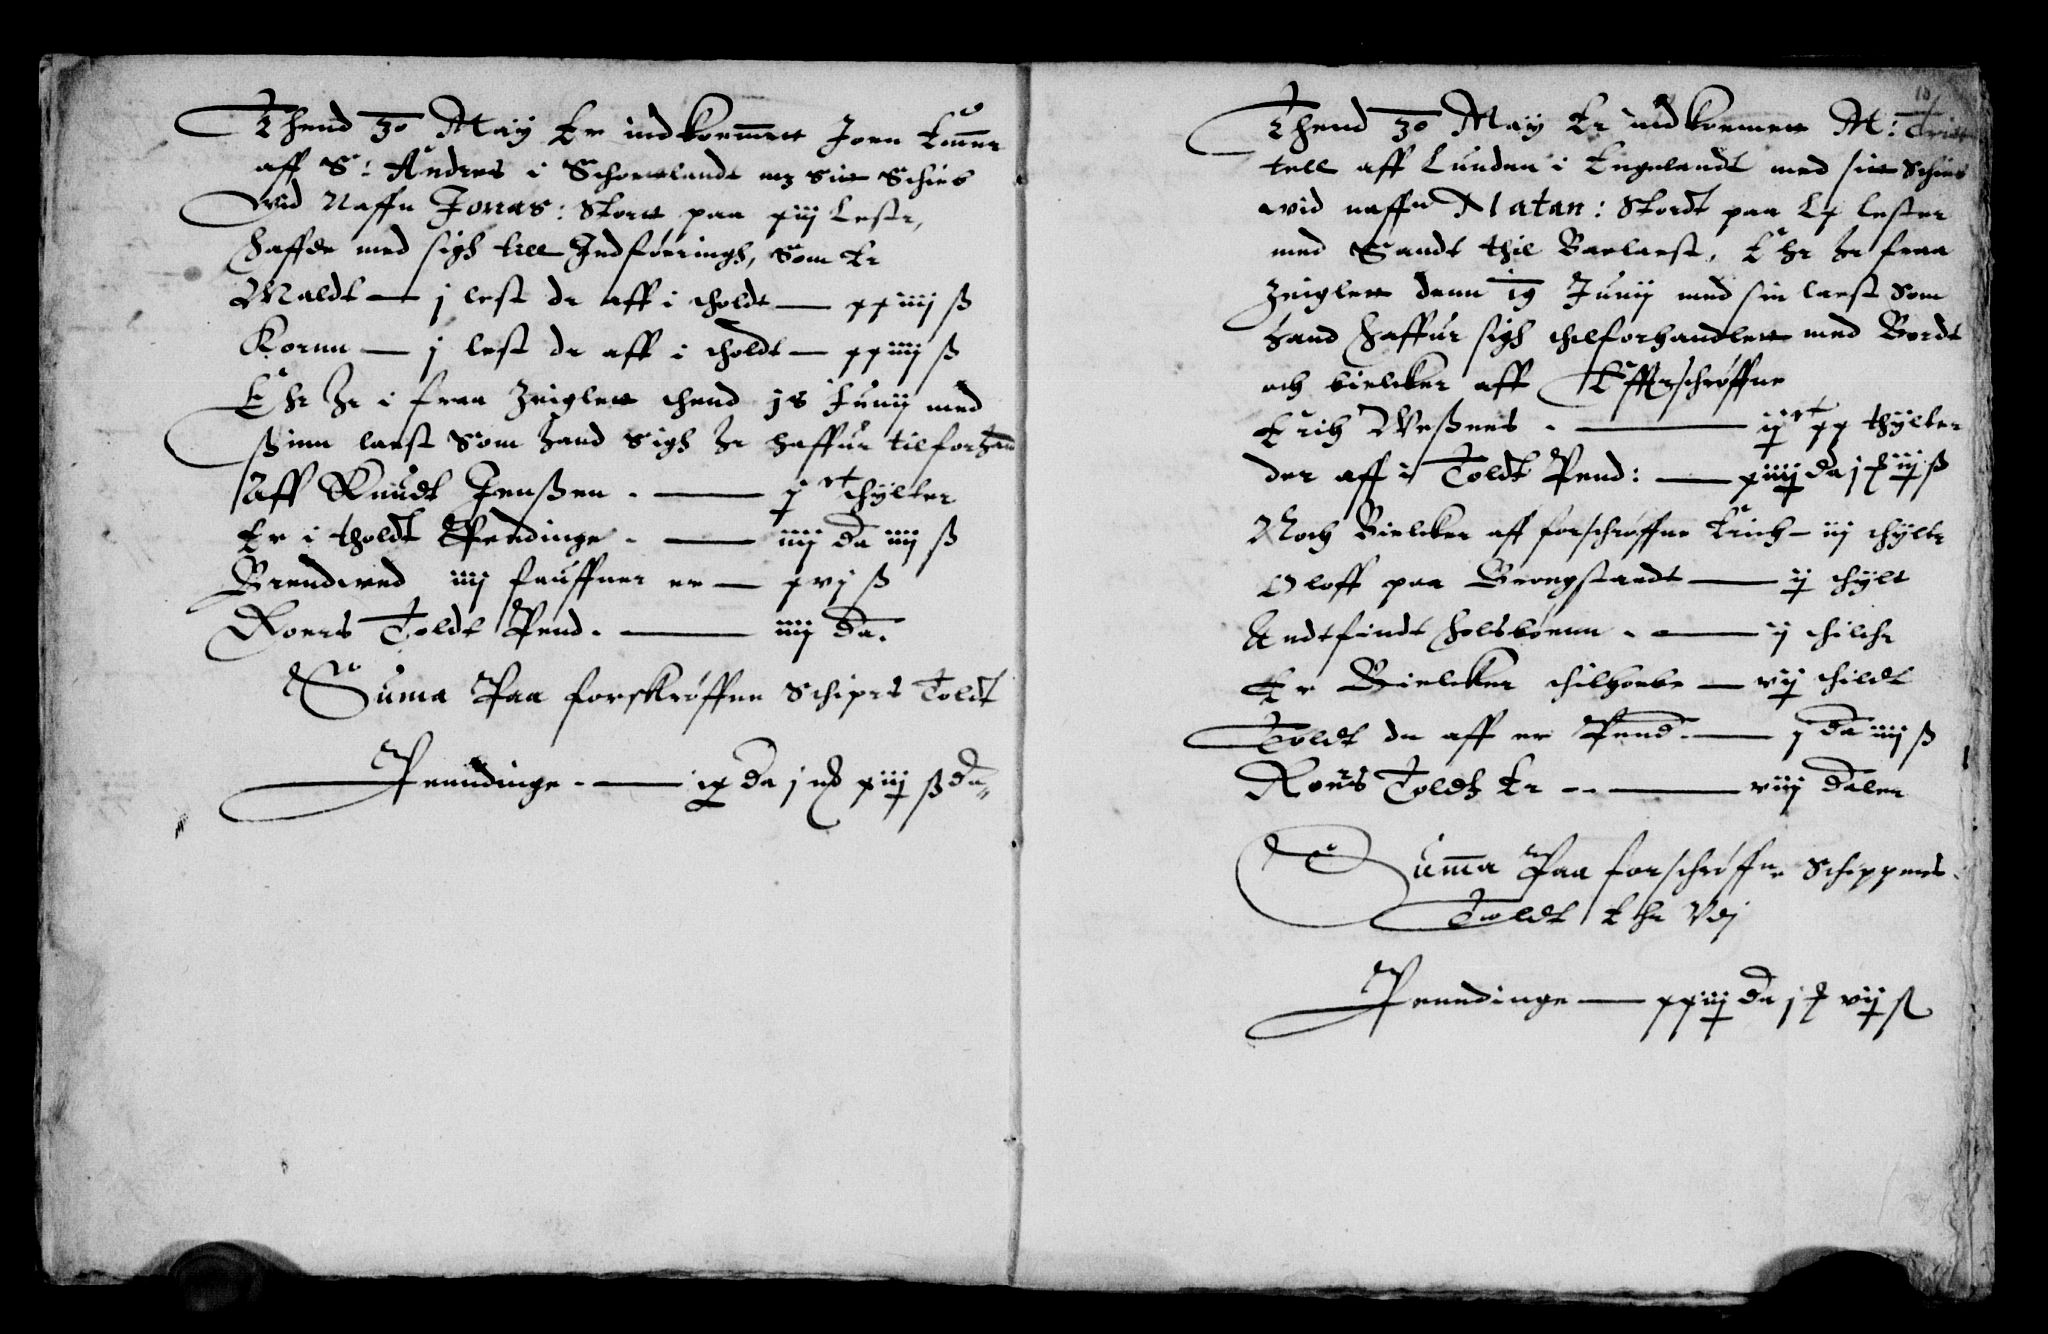 Thend 30 May Er indkommen Joen
aff S: Andres i Schottlandt mz sitt Schieb
wid Naffn Jonas: Stortt paa xiij Lestr,
haffde med sigh till Indføringh, Som Er
Maldt — j lest dr aff i tholdt — xxiiij ß
Kornn — j lest dr aff i tholdt — xxiiij ß
Ehr Hr i fraa Zeiglett thend 18 Junij med
ßinn laest Som hand Sigh Hr haffuer tilforhand
Aff Knudt Jenßen . — thylter
Er i tholdt Pendinge . — iiij da iiij ß
Brendwed iiij fauffner er — xvj ß
Roers Toldt Pend . — iiij da.
Suma Paa forskrøffne Schiprs Toldt
Penndinge . — ix da j xiij ß da
10
Thend 30 May Er indkommen M:
tell aff Lunden i Engelandt med sitt Schieb
wid naffn Natan: Stordt paa Lx lester
med Sandt thil Barlaest, Ehr Hr fraa
Zeiglett denn 19 Junij med sin laest Som
hand haffuer sigh thilforhandlett med Bordt
och bielcker aff Effterschrøffne
Erich Weßnes . — xx thylter
der aff i Toldt Pend: — da j iij ß
Noch Bielcker aff forschrøffne Erich — iij thyltr
Oloff paa Brongstandt — ij thylt
Andtfindt Holsboenn . — ij thilthr
Er Bielcker thilhobe — vij thildt
Toldt dr aff er Pend . — j da iiij ß
Roers Toldt Er — viij daler
Summa Paa forschrøffne Schippers
Toldt Ehr Vdj
Penndinge — xxiij da j vij ß